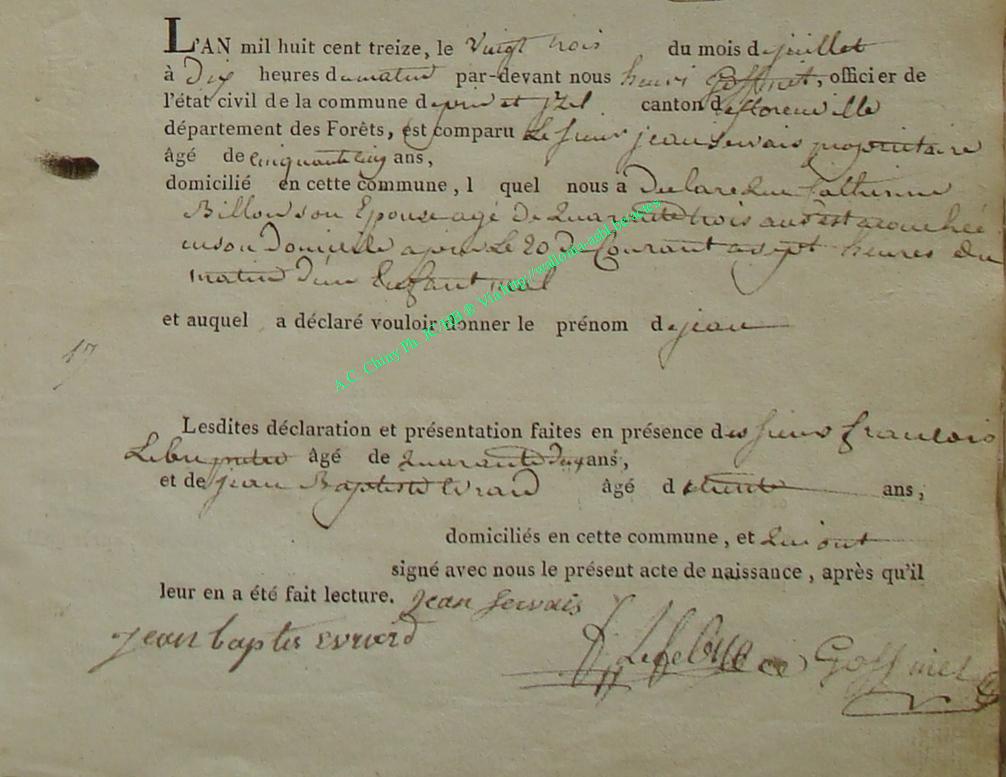 L'AN mil huit cent treize, le vingt trois du mois de juillet
à Dix heures du matin par-devant nous henri Goffinet, officier de
l'état civil de la commune de et jzel canton de florenville
département des Forêts, est comparu Le sieur jean servais proprietaire
âgé de cinquante cinq ans,
domicilié en cette commune, l quel nous a Declare que Catherine
Billon son Epouse agé De Quarante trois ans est acouchée
en son Domicile a Le 20 du Courant a sept heures du
matin d'un Enfant mal
et auquel a déclaré vouloir donner le prénom de jean
A.C. Chiny Ph. JC/HB ® Via http://wallonia-asbl.be/actes
17
Lesdites déclaration et présentation faites en présence des sieurs francois
âgé de Quarante deux ans,
et de jean Baptiste Evrard âgé d trente ans,
domiciliés en cette commune, et qui ont
signé avec nous le présent acte de naissance, après qu'il
leur en a été fait lecture. jean servais
jean baptis evrard Lefebure Goffinet